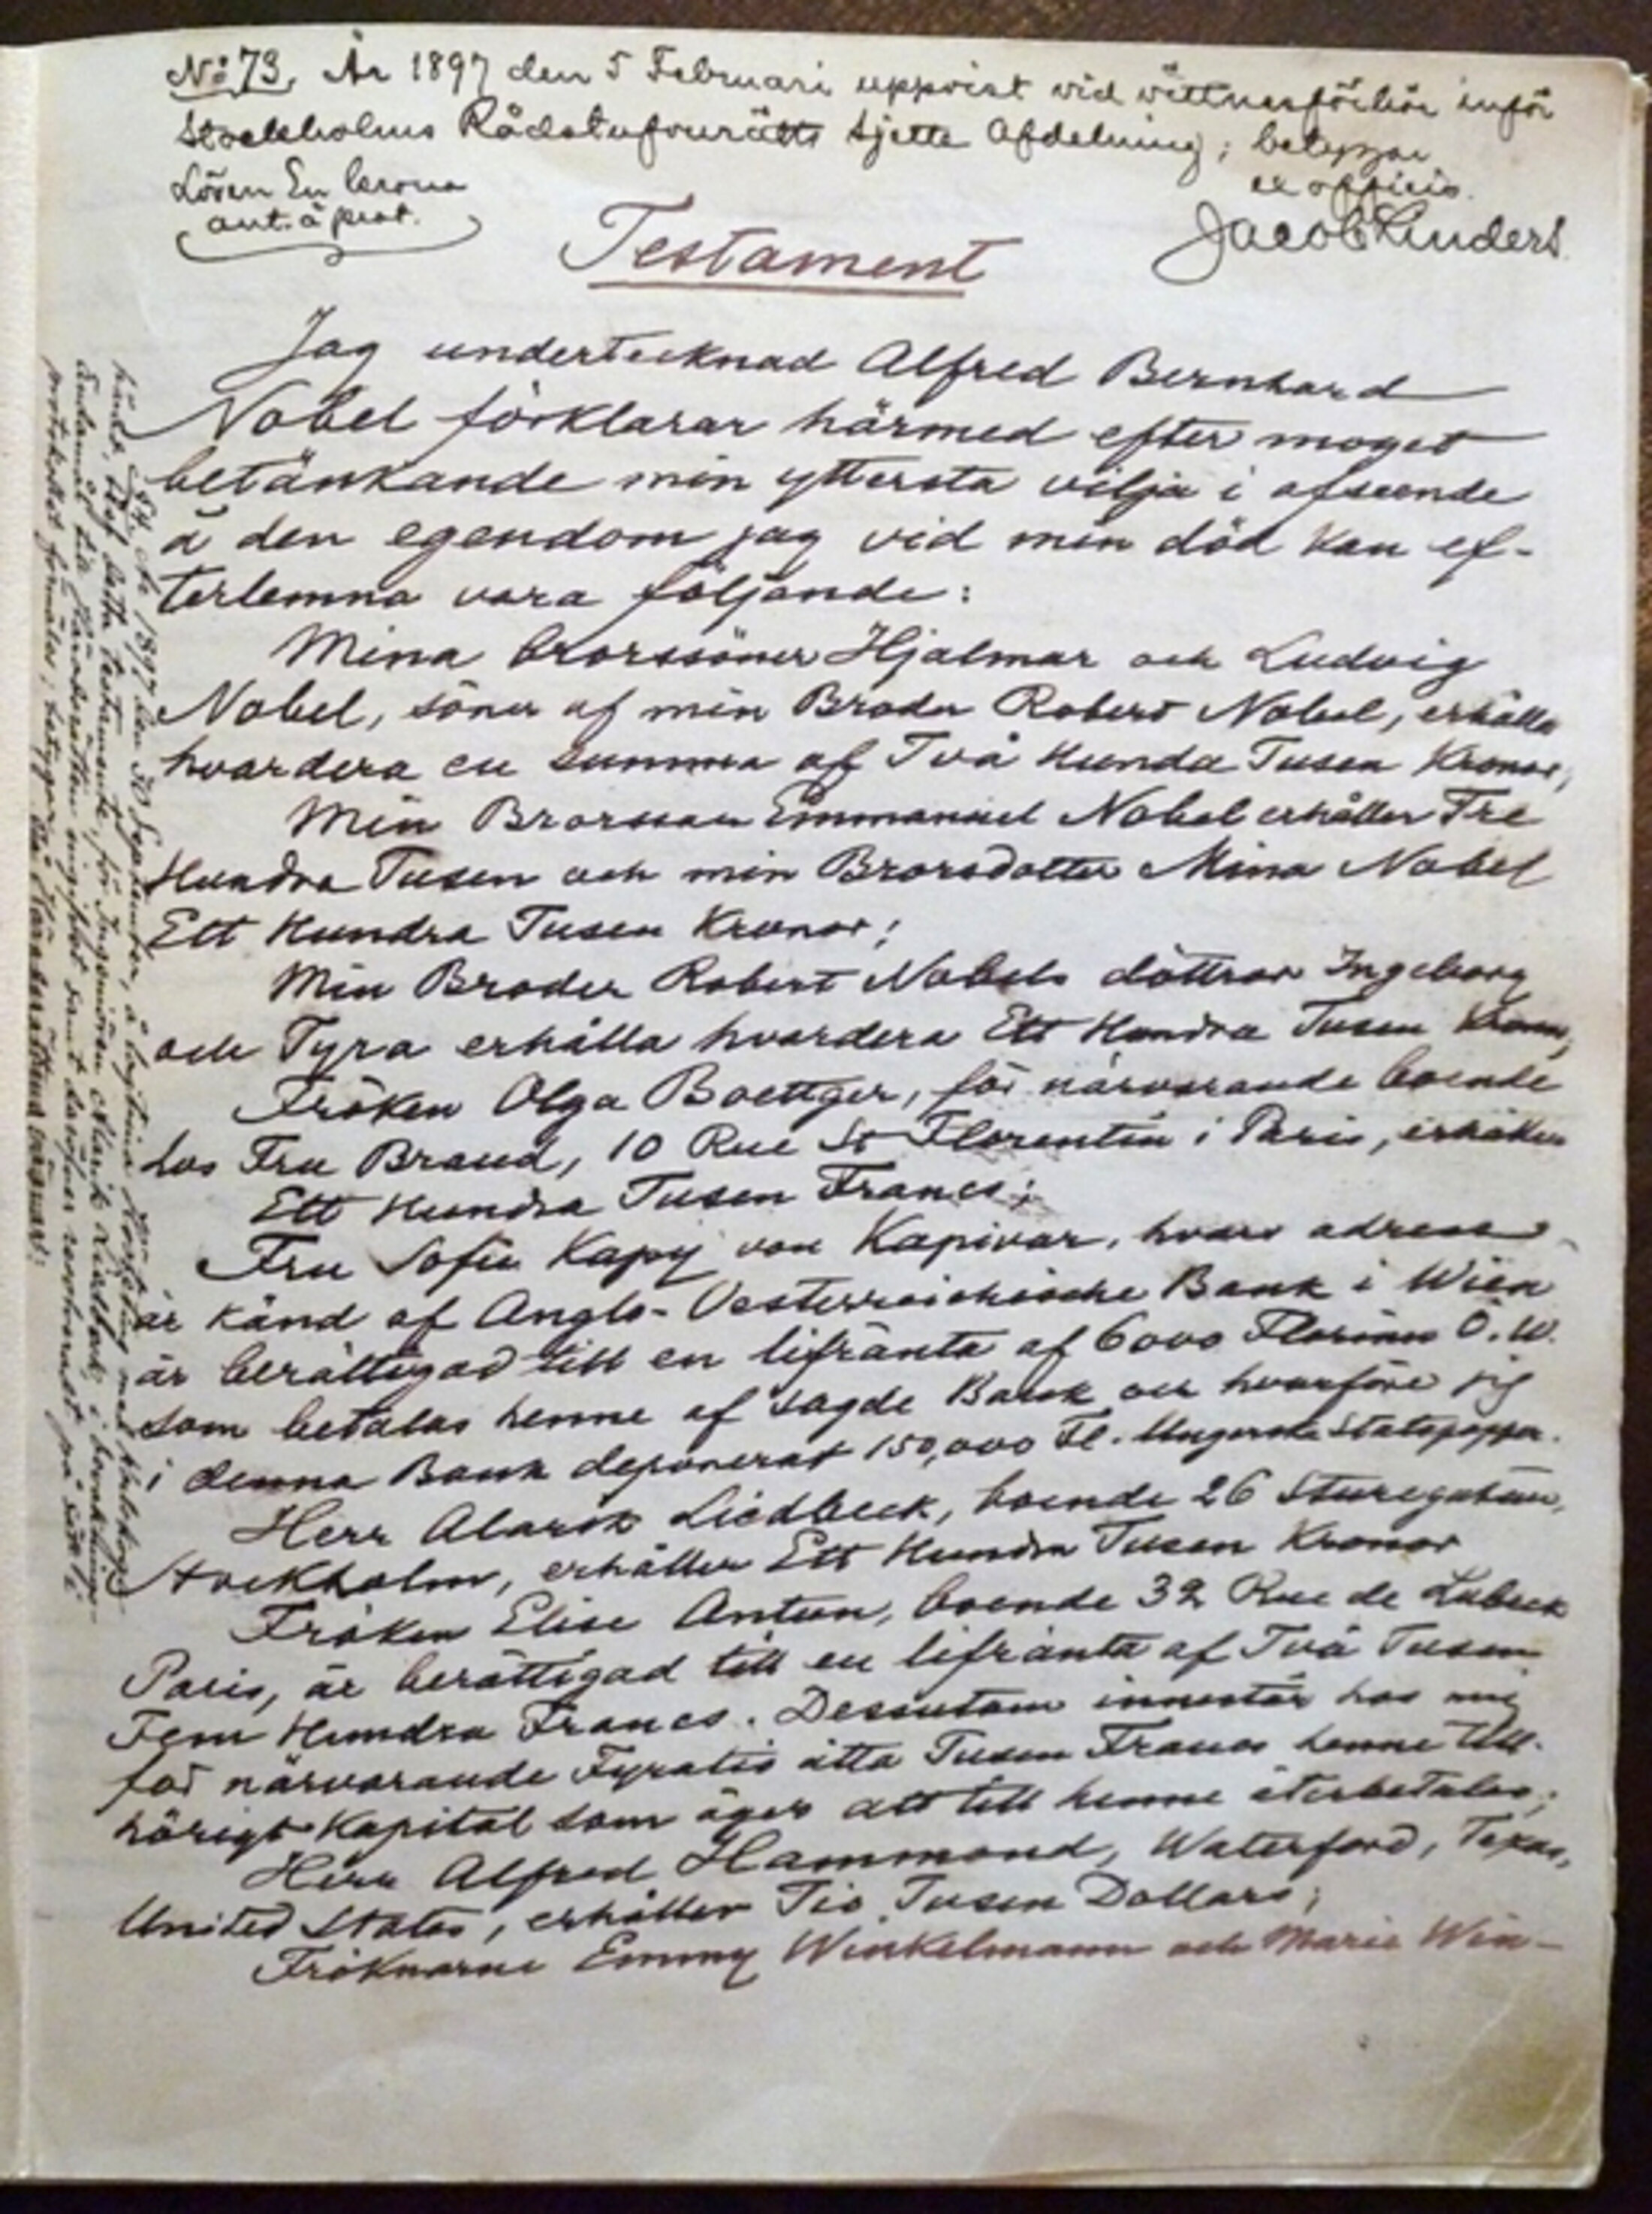 No 73. År 1897 den 5 Februari uppvist vid vittnesförhör inför
Stockholms Rådstufvurätts Sjette Afdelning; betygar
ex officio.
Lösen En krona
ant. å prot.
Testament
Jag undertecknad Alfred Bernhard
Nobel förklarar härmed efter moget
betänkande min yttersta vilja i afseende
å den egendom jag vid min död kan ef-
terlemna vara följande:
Mina brorssöner Hjalmar och Ludvig
Nobel, söner af min Broder Robert Nobel, erhålla
hvardera en summa af Två Hundra Tusen Kronor;
Min Brorsson Emmanuel Nobel erhåller Tre
Hundra Tusen och min Brorsdotter Mina Nobel
Ett Hundra Tusen Kronor;
Min Broder Robert Nobels döttrar Ingeborg
och Tyra erhålla hvardera Ett Hundra Tusen Kronor;
Fröken Olga Boettger, för närvarande boende
hos Fru Brand, 10 Rue St Florentin i Paris, erhåller
Ett Hundra Tusen Francs;
Fru Sofie Kapy von Kapivar, hvars adress
är känd af Anglo-Oesterreichische Bank i Wien
är berättigad till en lifränta af 6000 Florins Ö.W.
som betalas henne af sagde Bank och hvarföre jag
i denna Bank deponerat 150,000 Fl. Ungerska Statspapper.
Herr Alarik Liedbeck, boende 26 Sturegatan,
Stockholm, erhåller Ett Hundra Tusen Kronor
Fröken Elise Antun, boende 32 Rue de Lubeck
Paris, är berättigad till en lifränta af Två Tusen
Fem Hundra Francs. Dessutom innestår hos mig
för närvarande Fyratio åtta Tusen Francs henne till-
hörigt Kapital som äger att till henne återbetalas;
Herr Alfred Hammond, Waterford, Texas,
United States, erhåller Tio Tusen Dollars;
Fröknarne Emmy Winkelmann och Marie Win-